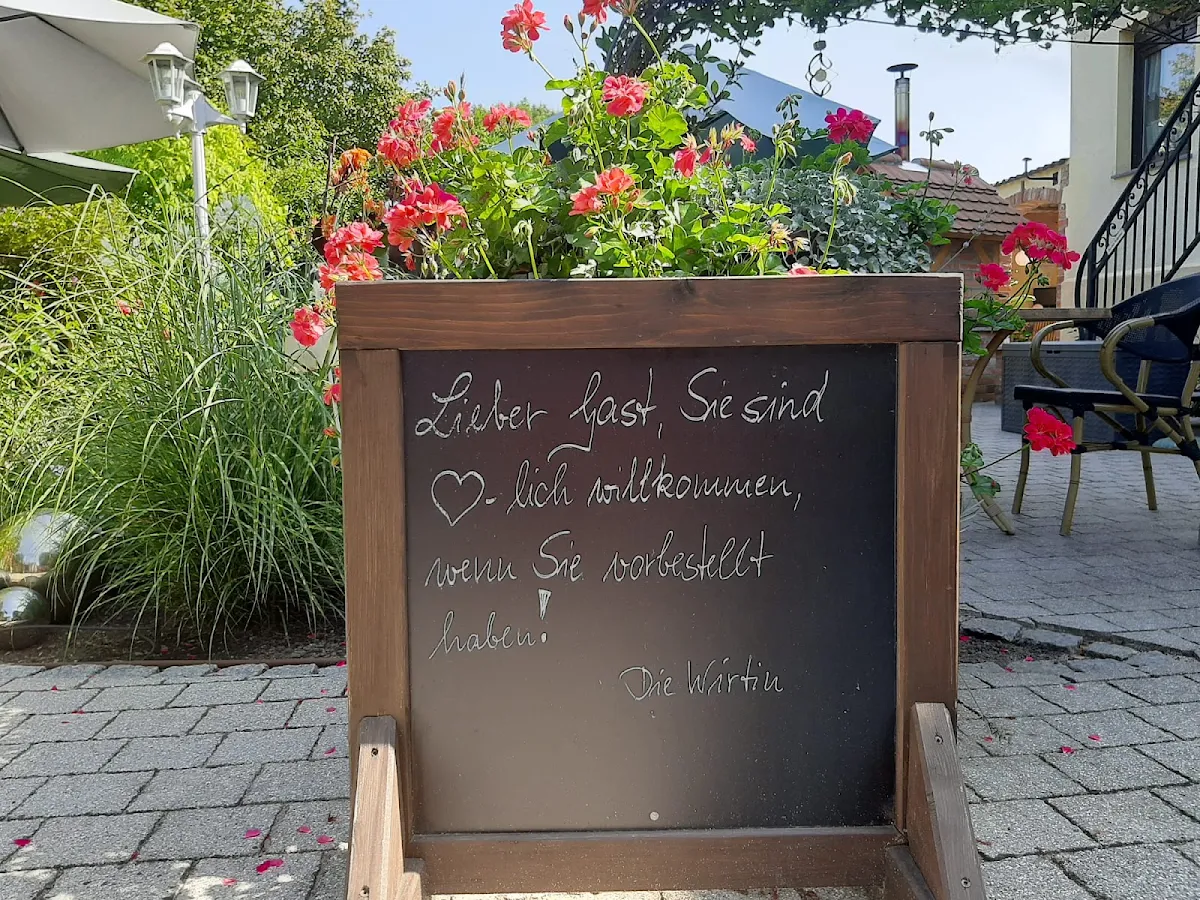 Lieber Gast, Sie sind
♡-lich willkommen,
wenn Sie vorbestellt
haben!
Die Wirtin